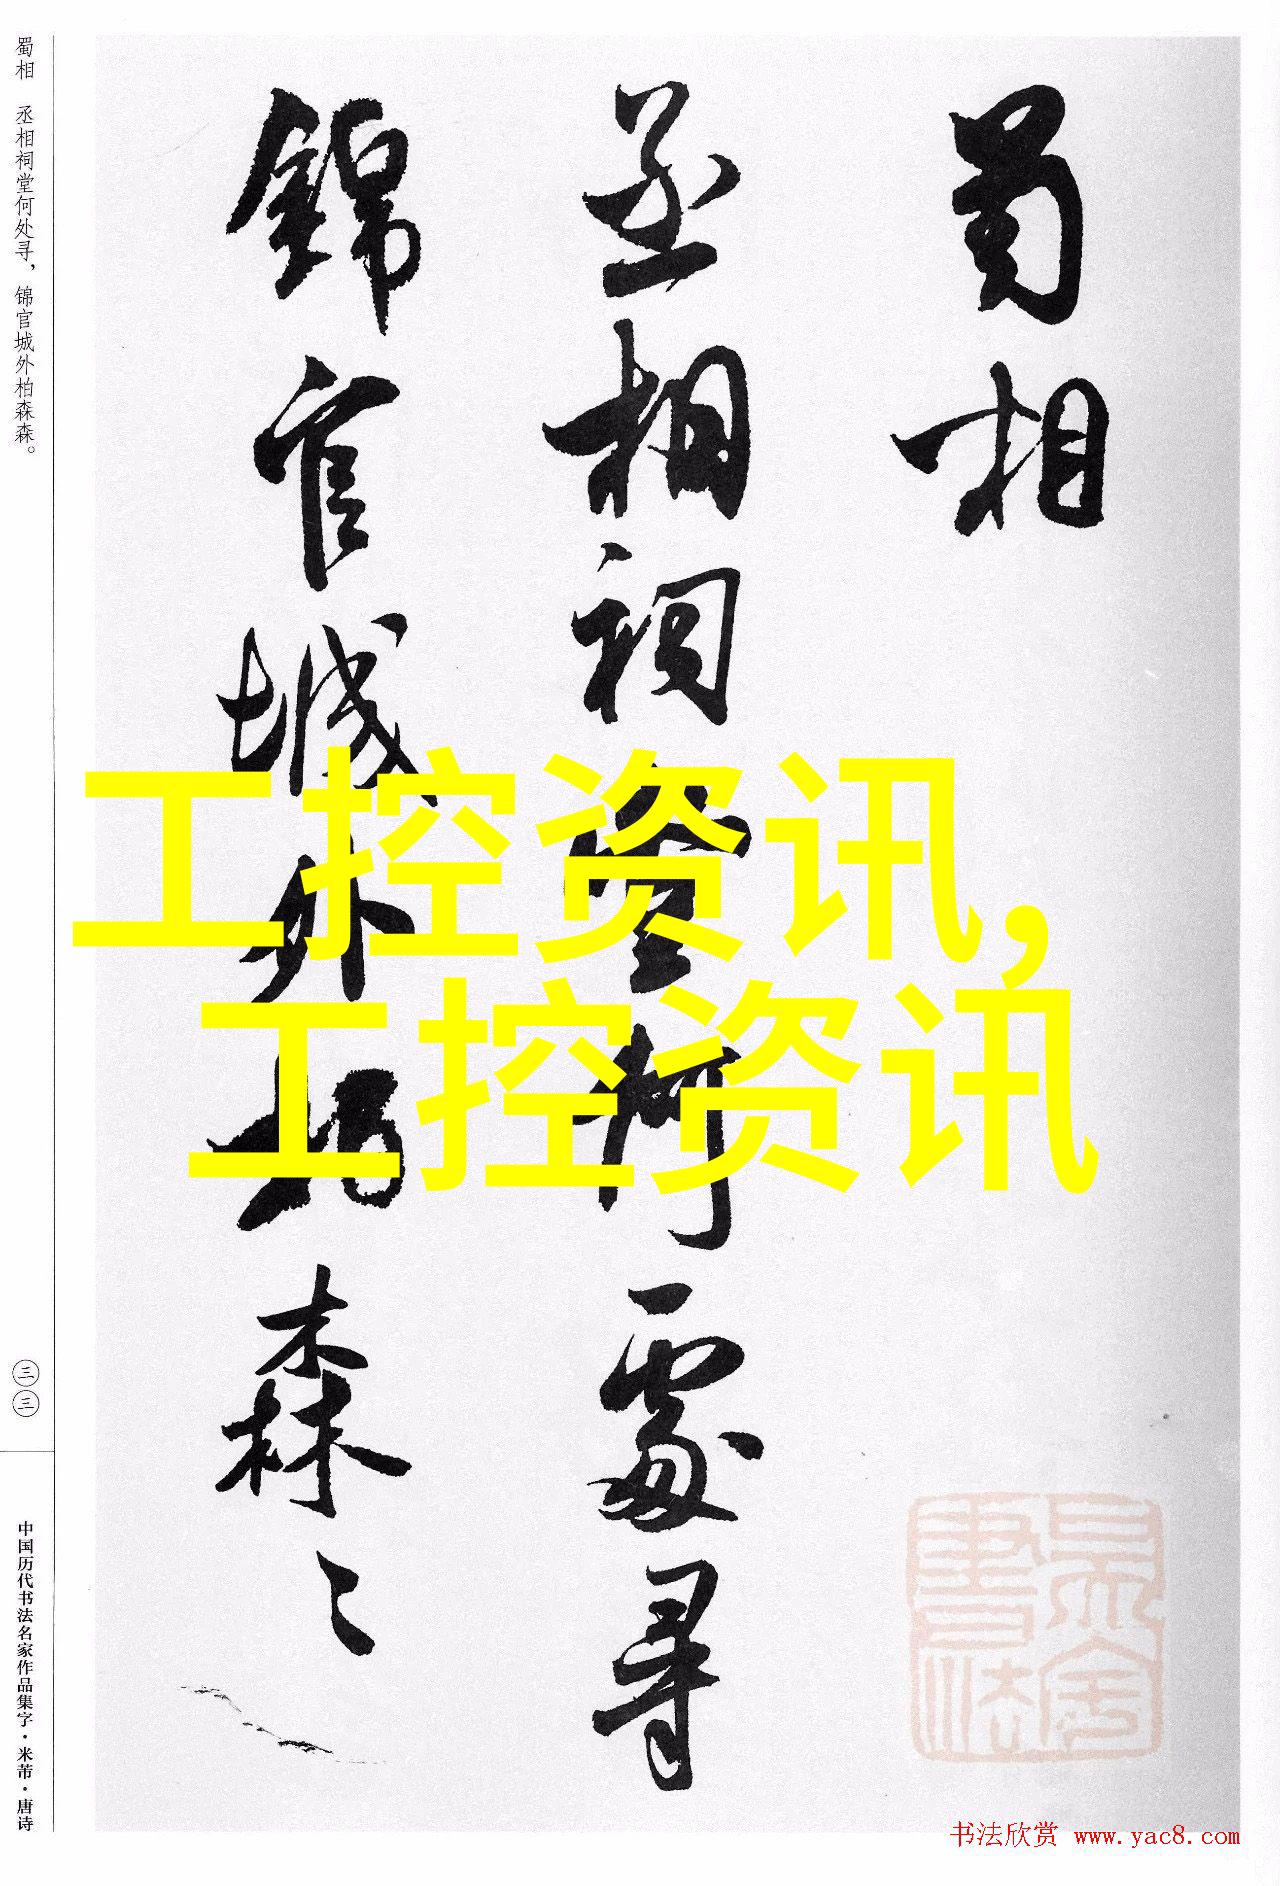 蜀相
丞相祠堂何處尋
錦官城外柏森〻
蜀相 丞相祠堂何处寻，锦官城外柏森森。
三三
中国历代书法名家作品集字·米芾·唐诗
工控资讯，
工控资讯
书法欣赏 www.yac8.com